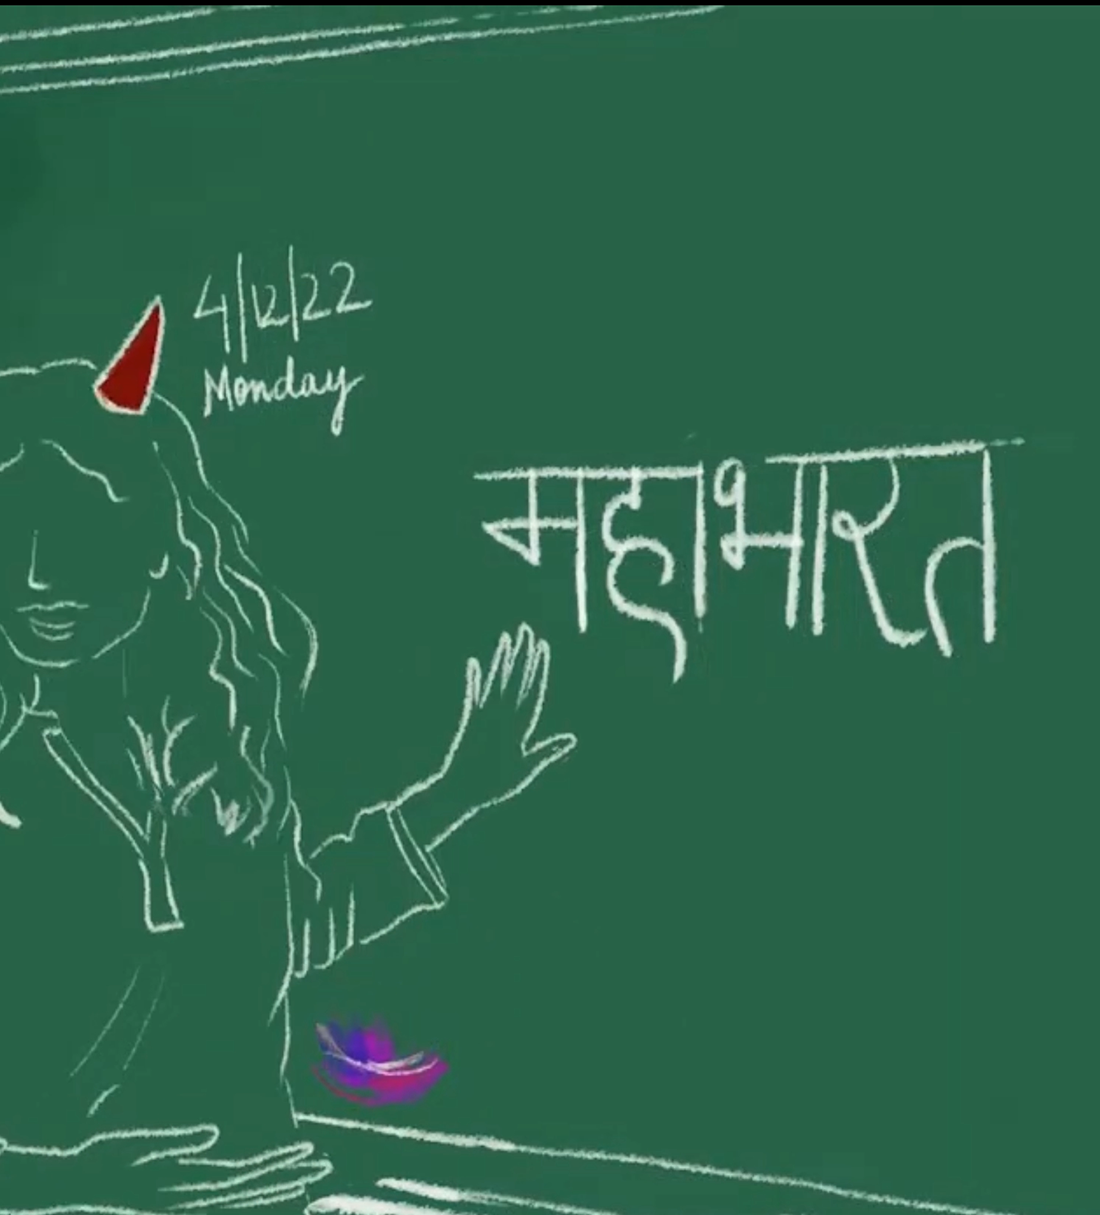 4/12/22
Monday
महाभारत